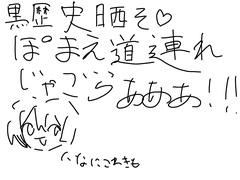 黒歴史晒そ♡
ぽまえ道連れ
じゃごらあああ!!!
なにこれきも